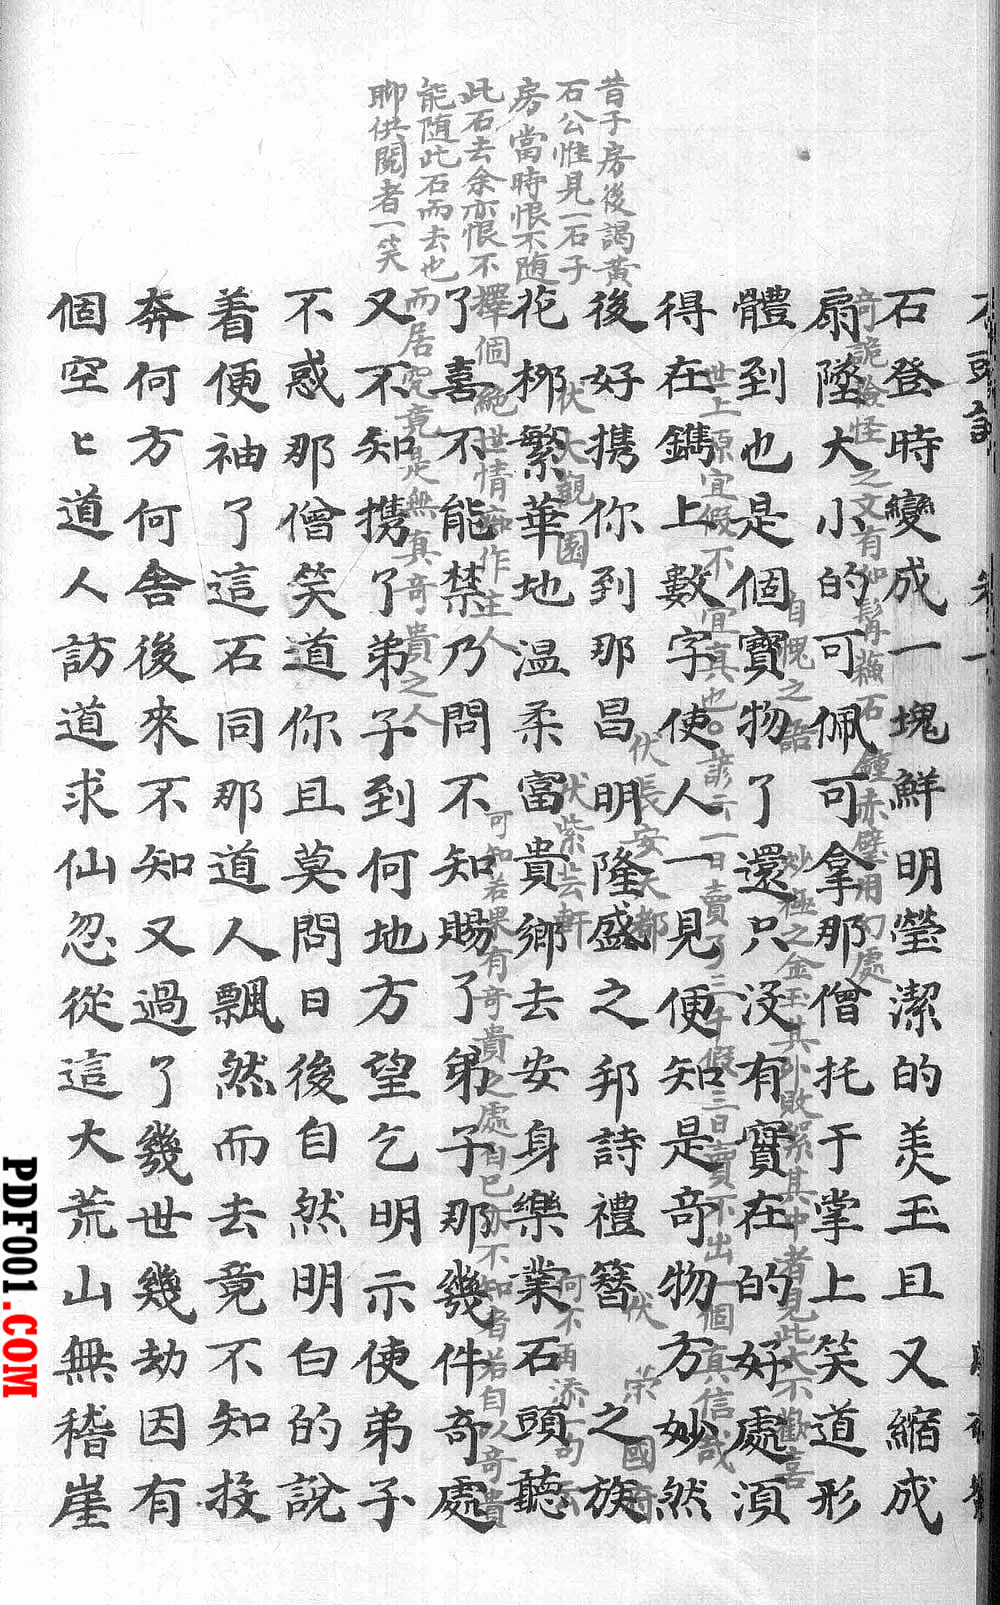 昔子房後謁黄
石公惟見一石子
房當時恨不随
此石去余亦恨不
能随此石而去也
聊供閱者一笑
石登時變成一塊鮮明瑩潔的美玉且又縮成
奇詭險怪之文有如髯蘇石鍾赤壁用幻處
扇墜大小的可佩可拿那僧托于掌上笑道形
自愧之語
妙極之金玉其外敗絮其中者見此大不歡喜
體到也是個寶物了還只没有實在的好處湏
世上原宜假不宜真也。諺云一日賣了三千假三日賣不出一個真信哉
得在鐫上數字使人一見便知是奇物方妙然
伏長安大都
伏榮國府
後好携你到那昌明隆盛之邦詩禮簪之族
伏大觀園
伏紫芸軒
何不再添一句云
花栁繁華地温柔富貴鄉去安身樂業石頭聽
擇個絶世情痴作主人
可知若果有奇貴之處自已亦不知者若自以奇貴
了喜不能禁乃問不知賜了弟子那幾件奇處
而居究竟是無真奇貴之人
又不知携了弟子到何地方望乞明示使弟子
不惑那僧笑道你且莫問日後自然明白的說
着便袖了這石同那道人飄然而去竟不知投
奔何方何舍後來不知又過了幾世幾劫因有
個空匕道人訪道求仙忽從這大荒山無稽崖
PDF001.COM